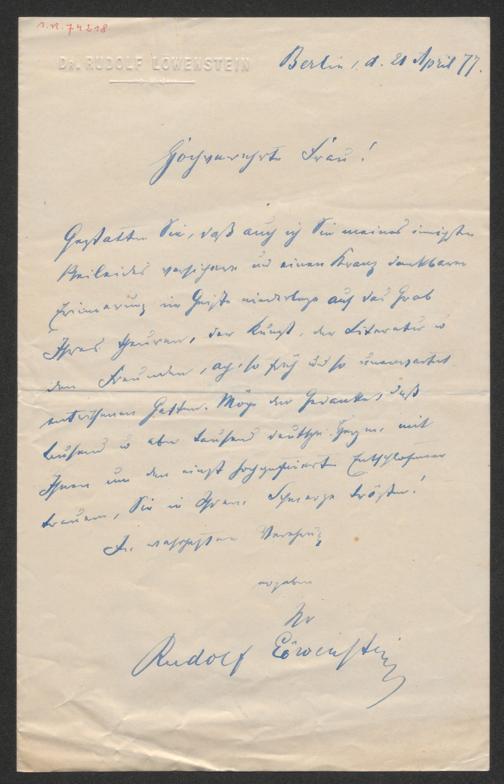 I.N. 74218
DR. RUDOLF LÖWENSTEIN
Berlin, d. 21 April 77.
Hochverehrte Frau!
Gestatten Sie, daß auch ich Sie meines innigsten
Beileides versichere und einen Kranz dankbarer
Erinnerung im Geiste niederlege auf das Grab
Ihres theuren, der Kunst, der Literatur u
den Freunden, ach, so früh und so unerwartet
entrissenen Gatten. Möge der Gedanke, daß
tausend u aber tausend deutsche Herzen mit
Ihnen um den einst hochgefeierten Entschlafenen
trauern, Sie in Ihrem Schmerze trösten!
In wahrhafter Verehrung
ergeben
Ihr
Rudolf Löwenstein